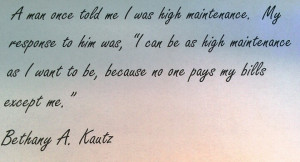 A man once told me I was high maintenance. My
response to him was, "I can be as high maintenance
as I want to be, because no one pays my bills
except me."
Bethany A. Kautz